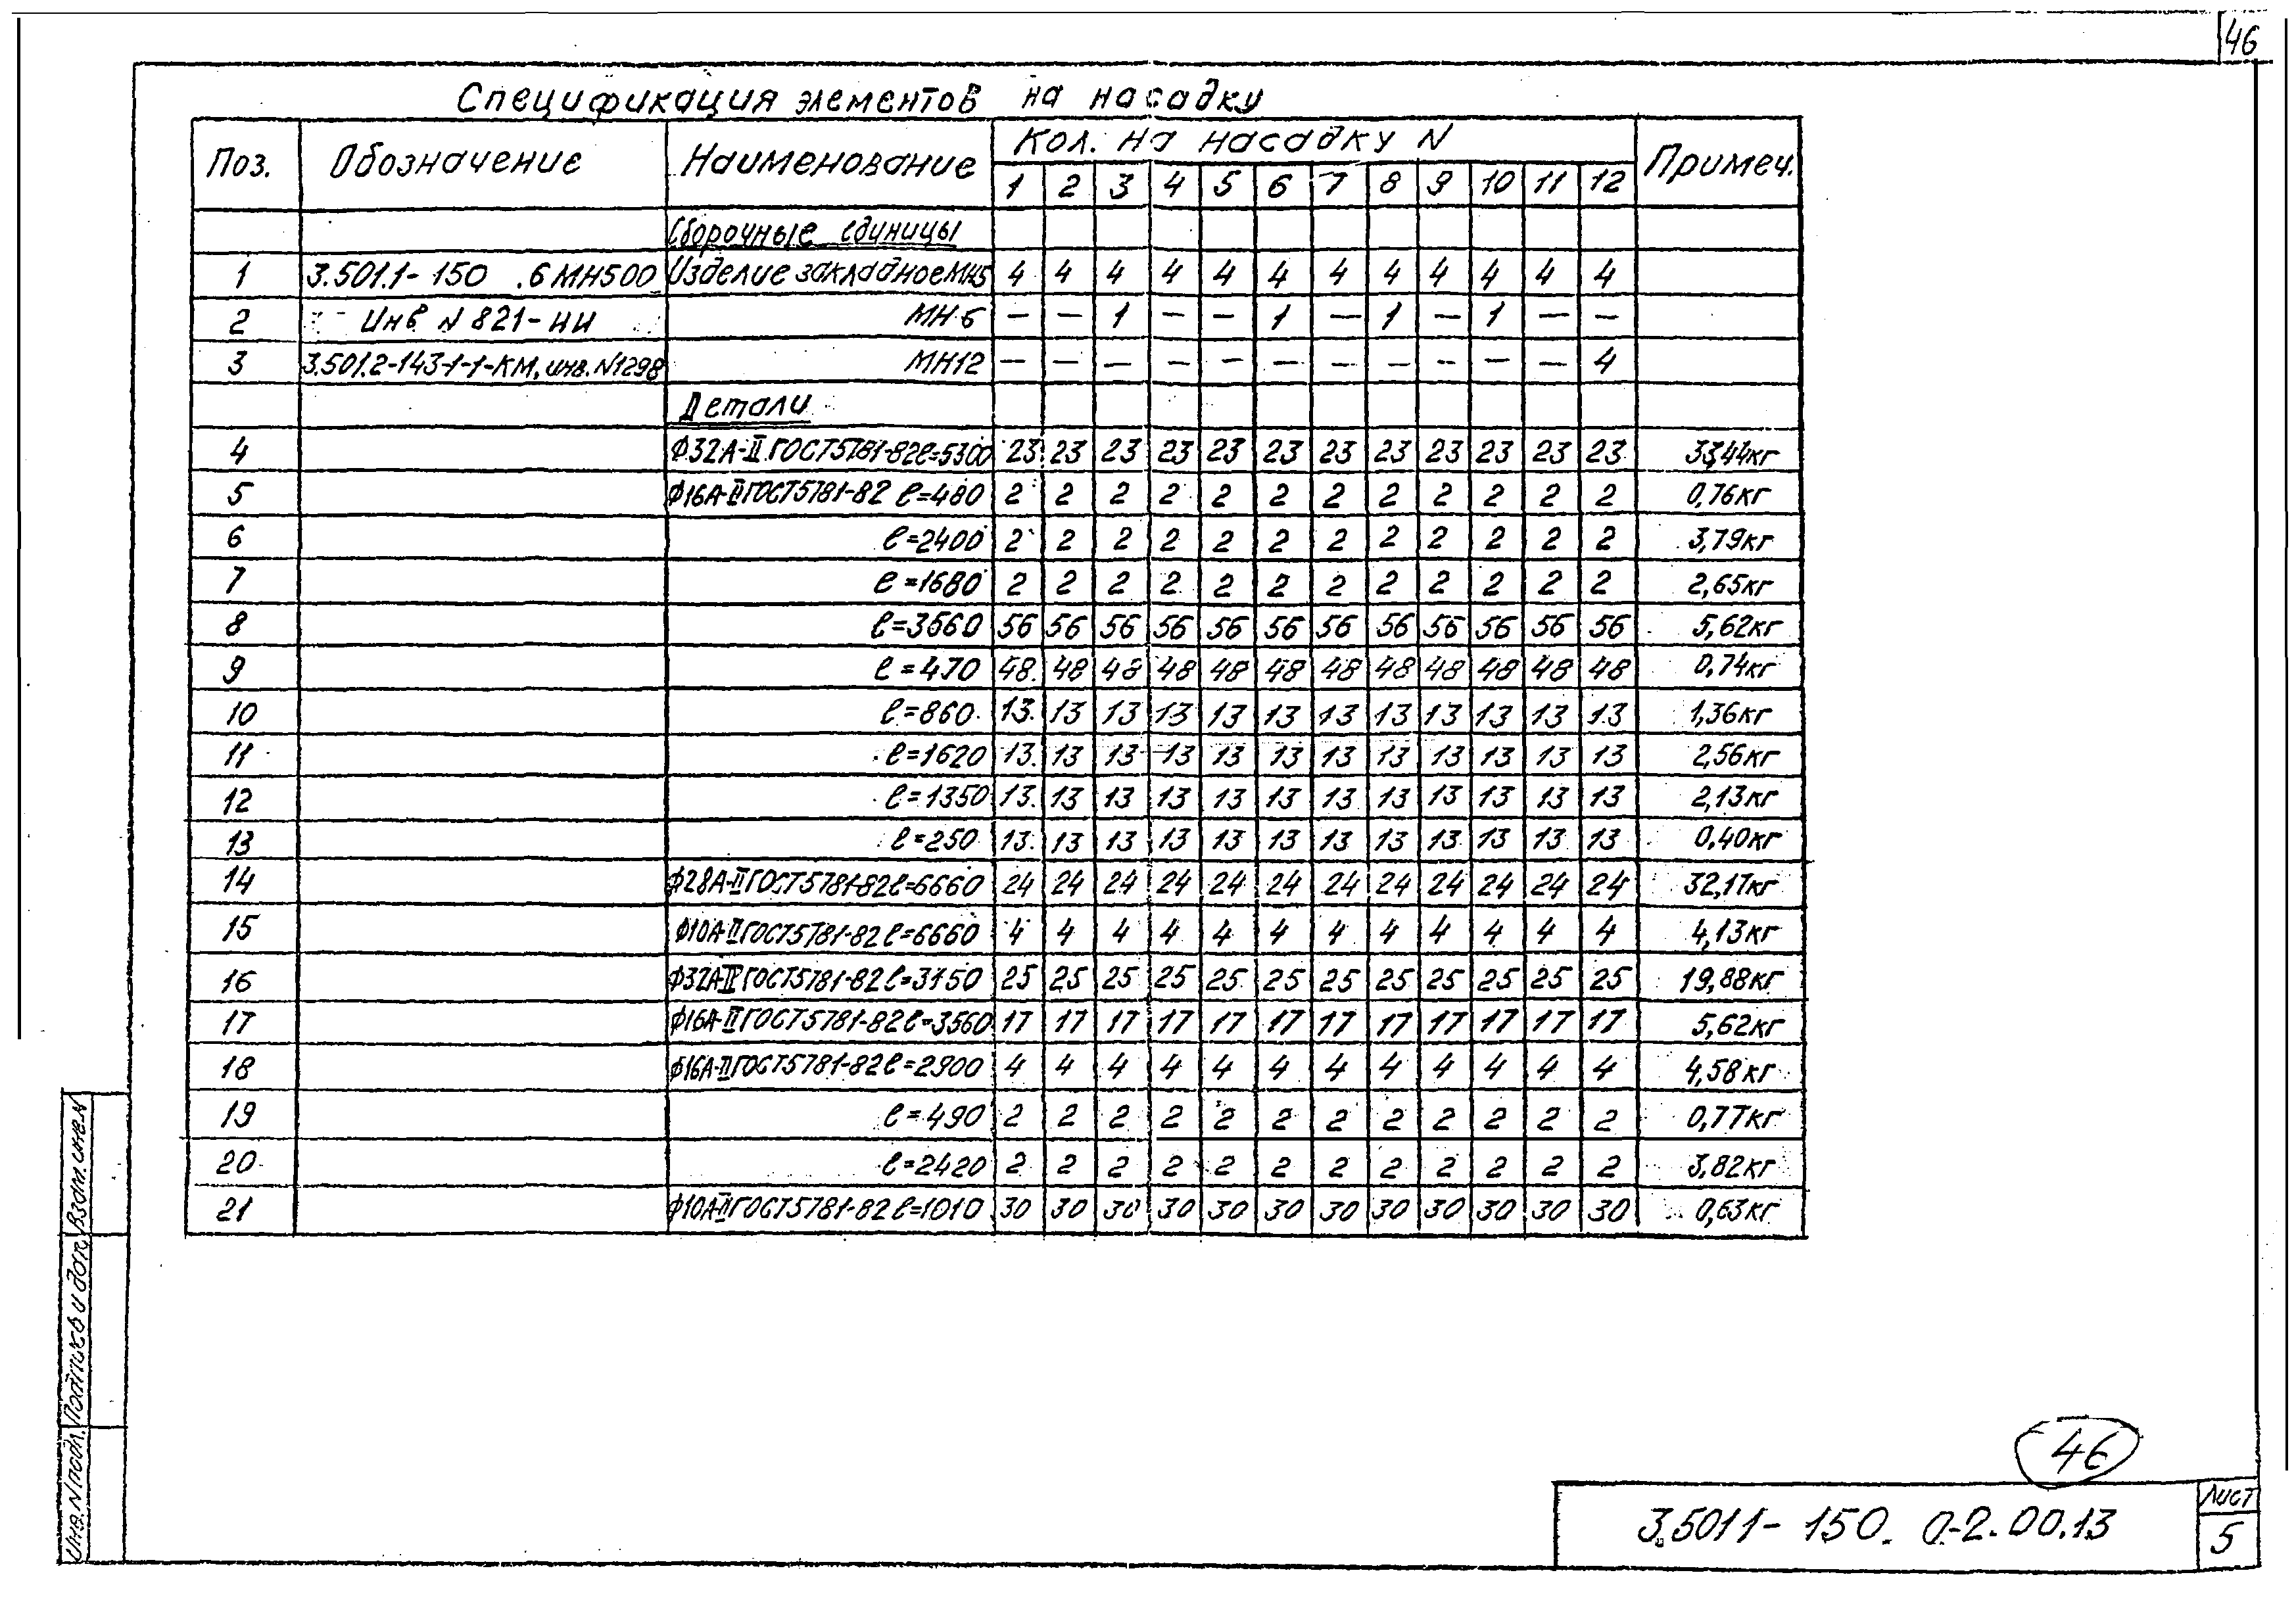 46
Спецификация элементов на насадку
Поз. Обозначение Наименование Кол. на насадку N Примеч.
1 2 3 4 5 6 7 8 9 10 11 12
Сборочные единицы
1 3.501.1-150 .6МН500 Изделие закладное МН5 4 4 4 4 4 4 4 4 4 4 4 4
2 Инв N 821-ИИ МН6 — — 1 — — 1 — 1 — 1 — —
3 3.501.2-143-1-1-КМ, инв. N1298 МН12 — — — — — — — — — — — 4
Детали
4 Ф32А-II ГОСТ5781-82 ℓ=5300 23 23 23 23 23 23 23 23 23 23 23 23 33,44кг
5 Ф16А-II ГОСТ5781-82 ℓ=480 2 2 2 2 2 2 2 2 2 2 2 2 0,76кг
6 ℓ=2400 2 2 2 2 2 2 2 2 2 2 2 2 3,79кг
7 ℓ=1680 2 2 2 2 2 2 2 2 2 2 2 2 2,65кг
8 ℓ=3560 56 56 56 56 56 56 56 56 56 56 56 56 5,62кг
9 ℓ=470 48 48 48 48 48 48 48 48 48 48 48 48 0,74кг
10 ℓ=860 13 13 13 13 13 13 13 13 13 13 13 13 1,36кг
11 ℓ=1620 13 13 13 13 13 13 13 13 13 13 13 13 2,56кг
12 ℓ=1350 13 13 13 13 13 13 13 13 13 13 13 13 2,13кг
13 ℓ=250 13 13 13 13 13 13 13 13 13 13 13 13 0,40кг
14 Ф28А-II ГОСТ5781-82 ℓ=6660 24 24 24 24 24 24 24 24 24 24 24 24 32,17кг
15 Ф10А-II ГОСТ5781-82 ℓ=6660 4 4 4 4 4 4 4 4 4 4 4 4 4,13кг
16 Ф32А-II ГОСТ5781-82 ℓ=3150 25 25 25 25 25 25 25 25 25 25 25 25 19,88кг
17 Ф16А-II ГОСТ5781-82 ℓ=3560 17 17 17 17 17 17 17 17 17 17 17 17 5,62кг
18 Ф16А-II ГОСТ5781-82 ℓ=2900 4 4 4 4 4 4 4 4 4 4 4 4 4,58кг
19 ℓ=490 2 2 2 2 2 2 2 2 2 2 2 2 0,77кг
20 ℓ=2420 2 2 2 2 2 2 2 2 2 2 2 2 3,82кг
21 Ф10А-II ГОСТ5781-82 ℓ=1010 30 30 30 30 30 30 30 30 30 30 30 30 0,63кг
Инв. N подл. Подпись и дата Взам. инв. N
46
3.501.1-150. 0-2.00.13
Лист
5